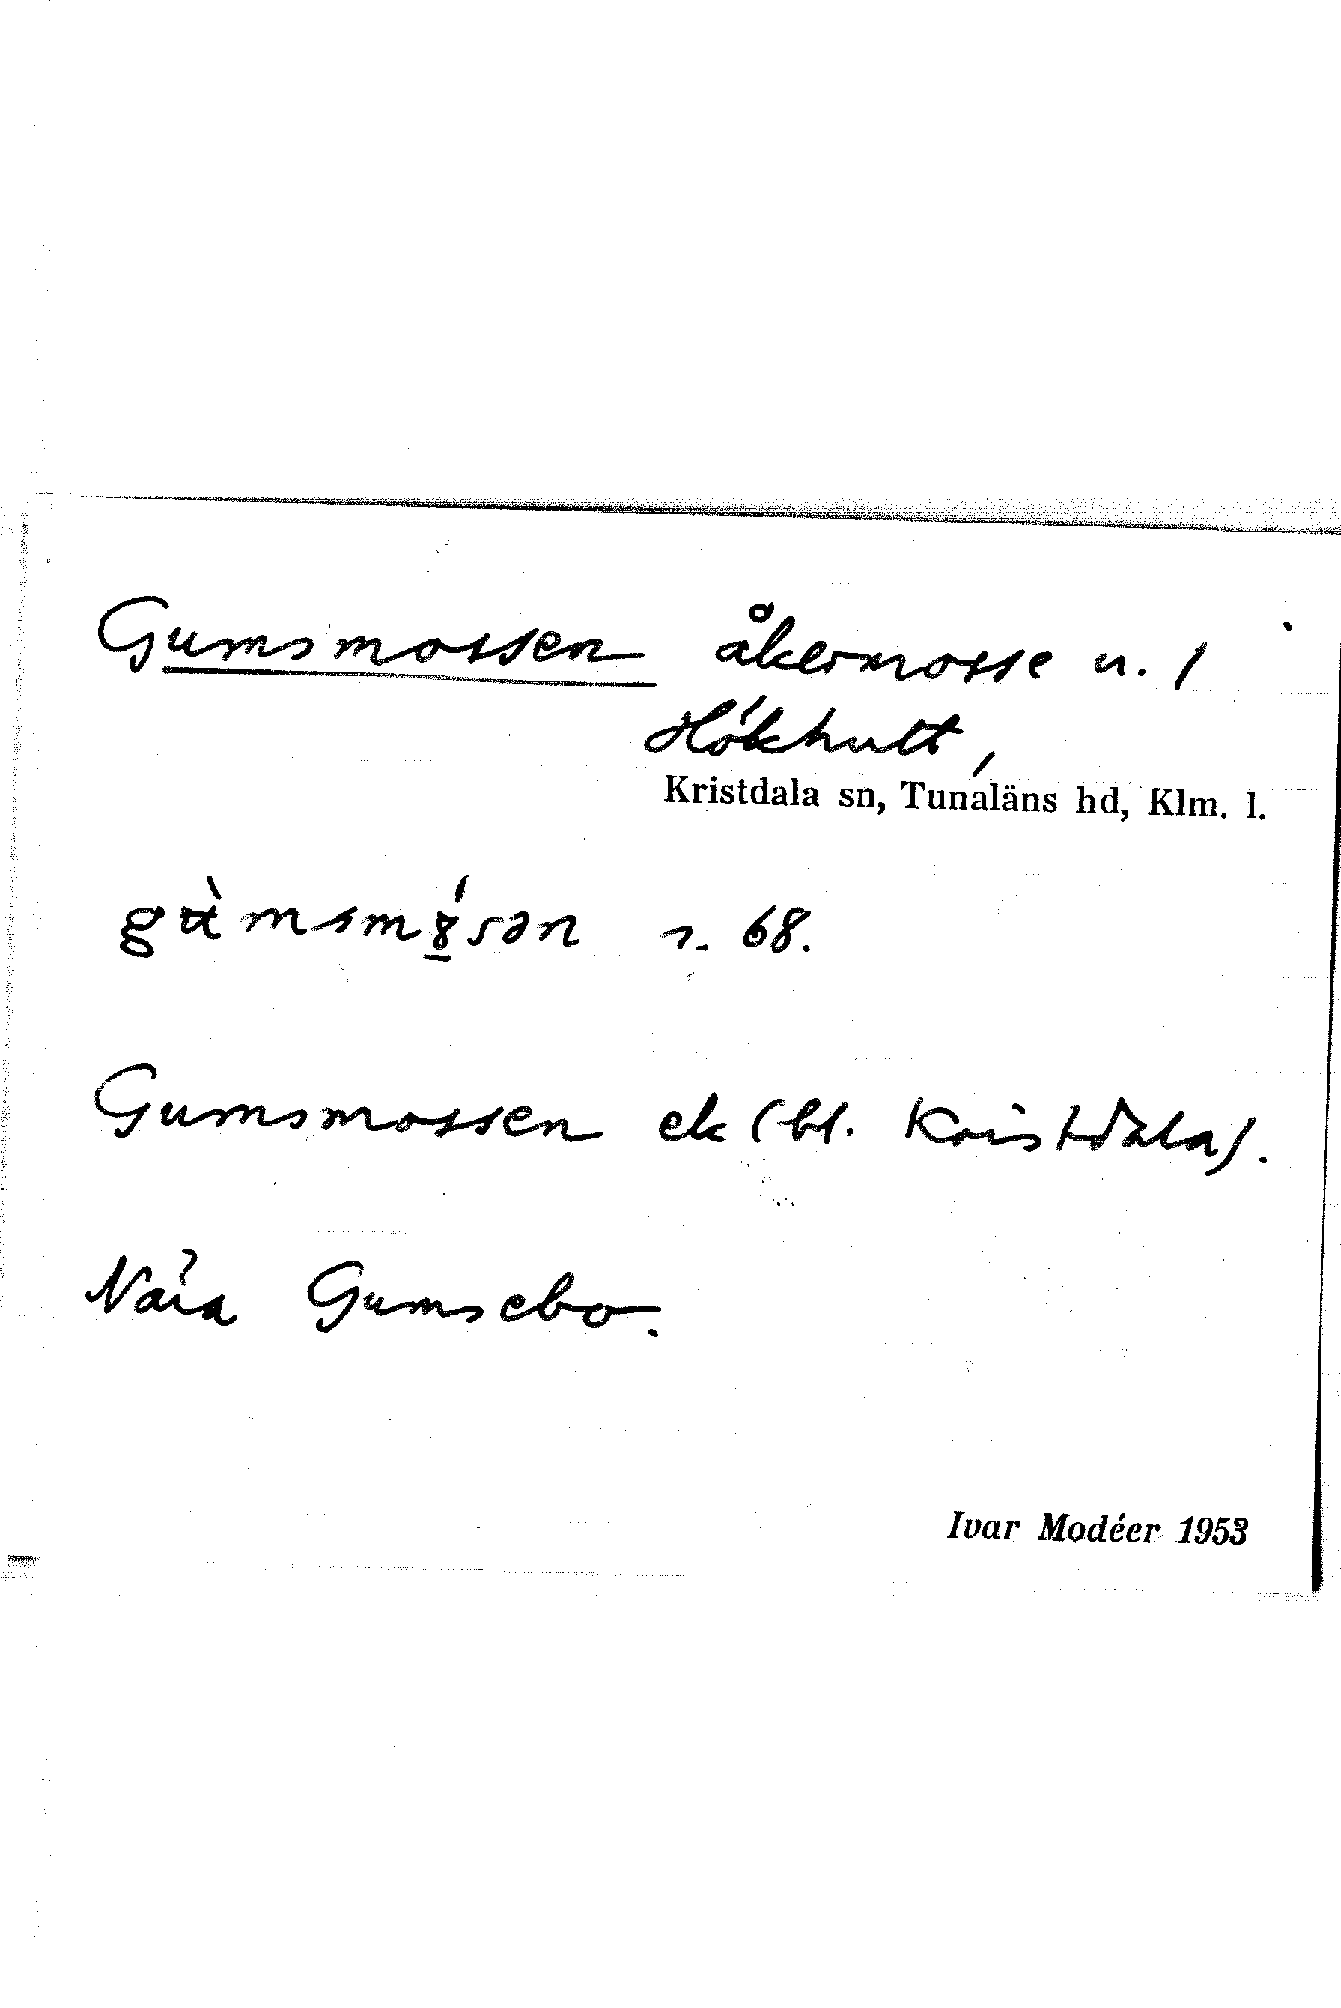 Gumsmossen åkermosse u. /
Hökhult,
Kristdala sn, Tunaläns hd, Klm. l.
s. 68.
Gumsmossen ek (bl. Kristdala).
Nära Gumsebo.
Ivar Modéer 1953